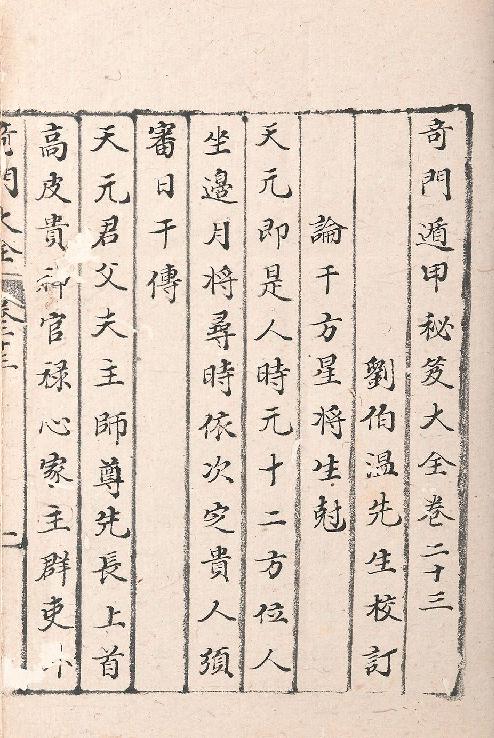 奇門遁甲秘笈大全卷二十三
劉伯温先生校訂
論干方星將生尅
天元即是人時元十二方位人
坐邊月将尋時依次定貴人須
審日干傳
天元君父夫主師尊先長上首
高皮貴神官禄心家主群吏
奇門大全 卷二十三 二